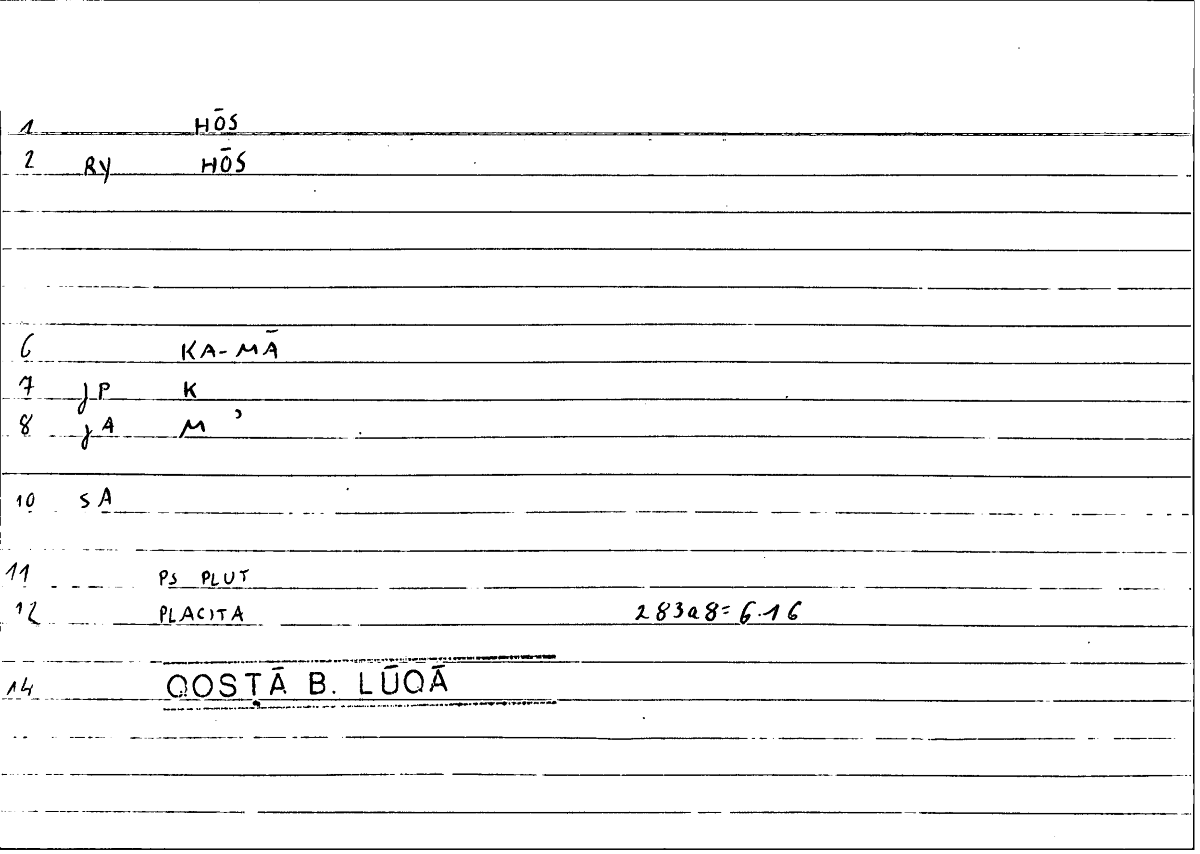 1 HŌS
2 RY HŌS
6 KA-MĀ
7 JP K
8 JA M ʾ
10 SA
11 PS PLUT
12 PLACITA 283a8=6.16
14 QOSṬĀ B. LŪQĀ